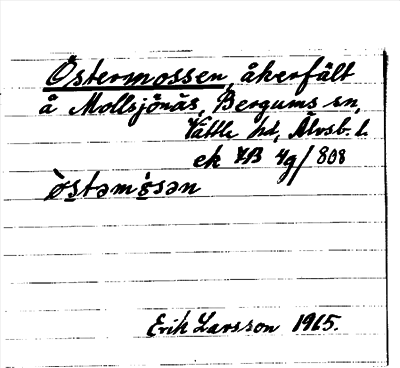 Östermossen, åkerfält
å Mollsjönäs, Bergums sn,
Vättle hd, Älvsb. l.
ek VB 4g/808
östəmʹsən
Erik Larsson 1915.